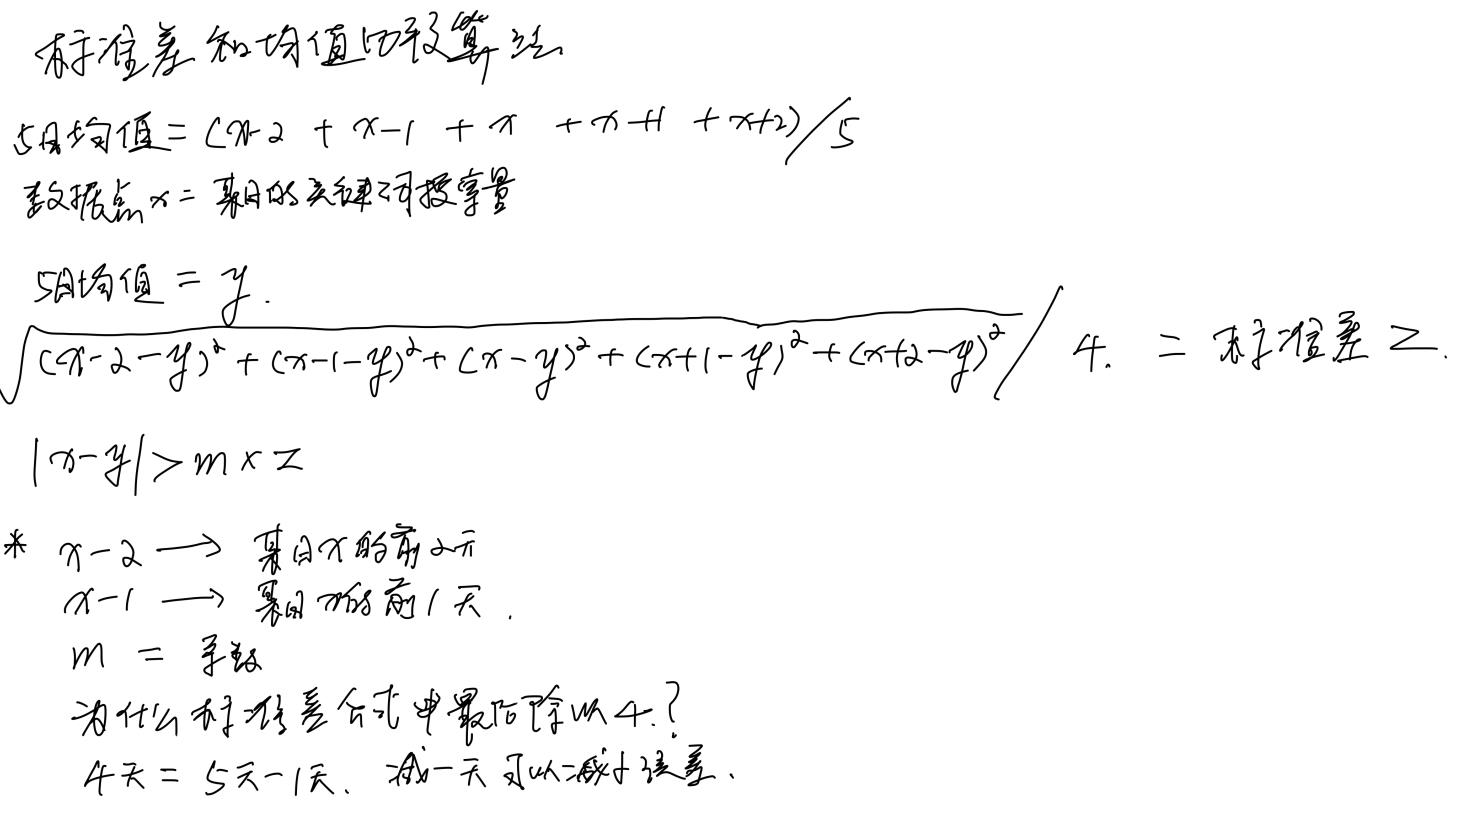 标准差和均值的算法
5日均值 = (x-2 + x-1 + x + x+1 + x+2)/5
数据点x = 某日的关键词搜索量
5日均值 = y.
√(x-2-y)² + (x-1-y)² + (x-y)² + (x+1-y)² + (x+2-y)² / 4. = 标准差 z.
|x-y| > m × z
* x-2 → 某日x的前2天
x-1 → 某日x的前1天.
m = 系数
为什么标准差公式中最后除以4.?
4天 = 5天-1天. 减一天可以减少误差.